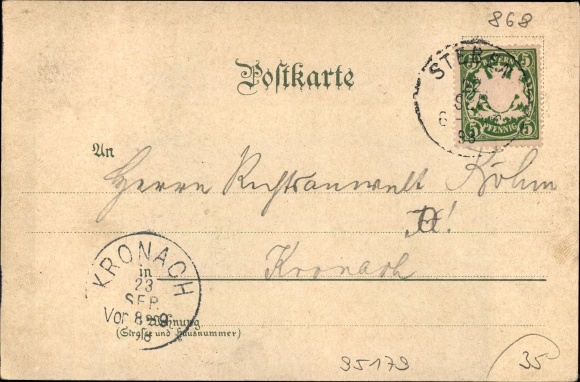 868
Postkarte
STE
5 5
98
5 PFENNIG 5
An
Herrn Rechtsanwalt Böhm
Kronach
KRONACH
in
23
SEP.
Vor 8-9
98
Wohnung
(Straße und Hausnummer)
95179
35